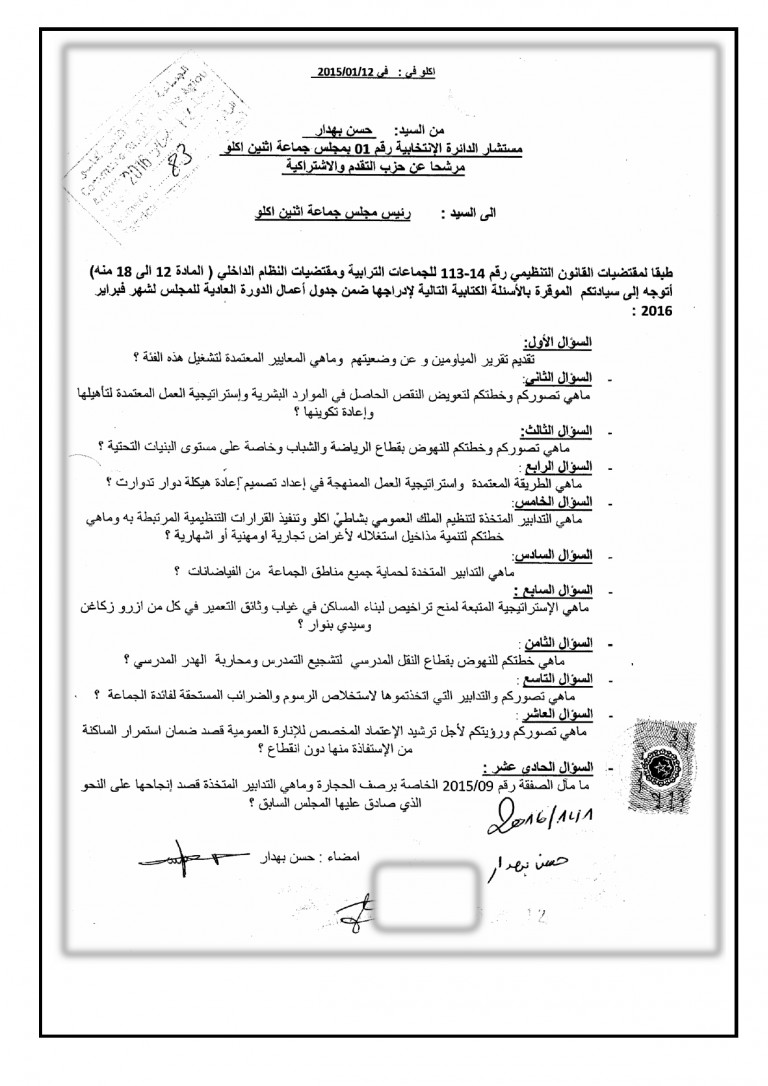 اكلو في : في 2015/01/12
2016
83
من السيد: حسن بهدار
مستشار الدائرة الإنتخابية رقم 01 بمجلس جماعة اثنين اكلو
مرشحا عن حزب التقدم والاشتراكية
الى السيد : رئيس مجلس جماعة اثنين اكلو
طبقا لمقتضيات القانون التنظيمي رقم 14-113 للجماعات الترابية ومقتضيات النظام الداخلي ( المادة 12 الى 18 منه)
أتوجه إلى سيادتكم الموقرة بالأسئلة الكتابية التالية لإدراجها ضمن جدول أعمال الدورة العادية للمجلس لشهر فبراير
2016 :
السؤال الأول:
تقديم تقرير المياومين و عن وضعيتهم وماهي المعايير المعتمدة لتشغيل هذه الفئة ؟
- السؤال الثاني:
ماهي تصوركم وخطتكم لتعويض النقص الحاصل في الموارد البشرية وإستراتيجية العمل المعتمدة لتأهيلها
وإعادة تكوينها ؟
- السؤال الثالث:
ماهي تصوركم وخطتكم للنهوض بقطاع الرياضة والشباب وخاصة على مستوى البنيات التحتية ؟
- السؤال الرابع :
ماهي الطريقة المعتمدة واستراتيجية العمل الممنهجة في إعداد تصميم إعادة هيكلة دوار تدوارت ؟
- السؤال الخامس:
ماهي التدابير المتخذة لتنظيم الملك العمومي بشاطئ اكلو وتنفيذ القرارات التنظيمية المرتبطة به وماهي
خطتكم لتنمية مذاخيل استغلاله لأغراض تجارية اومهنية أو اشهارية ؟
- السؤال السادس:
ماهي التدابير المتخدة لحماية جميع مناطق الجماعة من الفياضانات ؟
- السؤال السابع :
ماهي الإستراتيجية المتبعة لمنح تراخيص لبناء المساكن في غياب وثائق التعمير في كل من ازرو زكاغن
وسيدي بنوار ؟
- السؤال الثامن :
ماهي خطتكم للنهوض بقطاع النقل المدرسي لتشجيع التمدرس ومحاربة الهدر المدرسي ؟
- السؤال التاسع :
ماهي تصوركم والتدابير التي اتخذتموها لاستخلاص الرسوم والضرائب المستحقة لفائدة الجماعة ؟
- السؤال العاشر :
ماهي تصوركم ورؤيتكم لأجل ترشيد الإعتماد المخصص للإنارة العمومية قصد ضمان استمرار الساكنة
من الإستفاذة منها دون انقطاع ؟
- السؤال الحادي عشر :
ما مآل الصفقة رقم 2015/09 الخاصة برصف الحجارة وماهي التدابير المتخذة قصد إنجاحها على النحو
الذي صادق عليها المجلس السابق ؟
امضاء : حسن بهدار
حسن بهدار